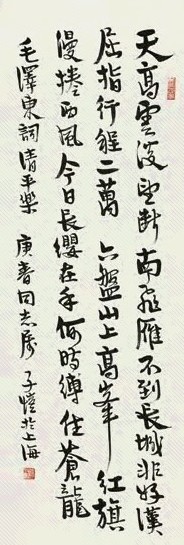 天高雲淡望斷南飛雁不到長城非好漢
屈指行程二萬 六盤山上高峯 紅旗
漫捲西風今日長纓在手何時縛住蒼龍
毛澤東詞清平樂 庚春同志屬 子愷於上海